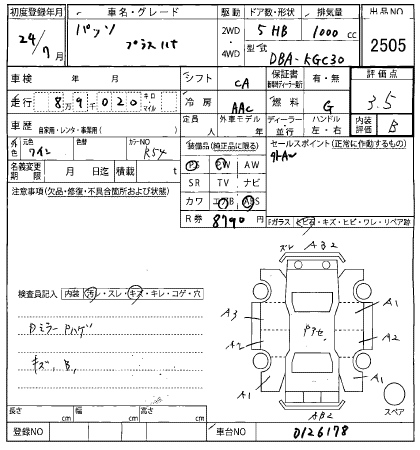 初度登録年月 車名・グレード 駆動 ドア数・形状 排気量 出品NO
24/7月 パッソ プラスハナ 2WD・4WD 5 HB 1000cc 2505
型式 DBA-KGC30
車検 年 月 シフト CA 保証書 有・無 評価点
走行 8万9千020キロ・マイル 冷房 AAC 燃料 G 3.5
車歴 自家用・レンタ・事業用( ) 定員 人 外車モデル 年 ディーラー 並行 ハンドル 左・右 内装評価 B
外色 元色 ワイン 色替 カラーNO R54 装備品(純正品に限る) セールスポイント(正常に作動するもの)
PS PW AW 外AW
名義変更期限 月 日迄 積載 t SR TV ナビ
注意事項(欠品・修復・不具合箇所および状態) カワ エアB ABS
R券 8790円 Fガラス トビ石・キズ・ヒビ・ワレ・リペア跡
ズレ AB2
検査員記入 内装 汚レ・スレ・キズ・キレ・コゲ・穴
A3 A1
Dミラー Pハゲ Pカセ
A2 A2
キズ, B,
A1 A1
スペア
長さ cm 幅 cm 高さ cm AB2
登録NO 車台NO 0126178